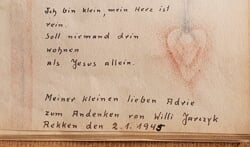 Ich bin klein, mein Herz ist
rein.
Soll niemand drin
wohnen
als Jesus allein.
Meiner kleinen lieben Adrie
zum Andenken von Willi Jarczyk
Rekken den 2.1.1945